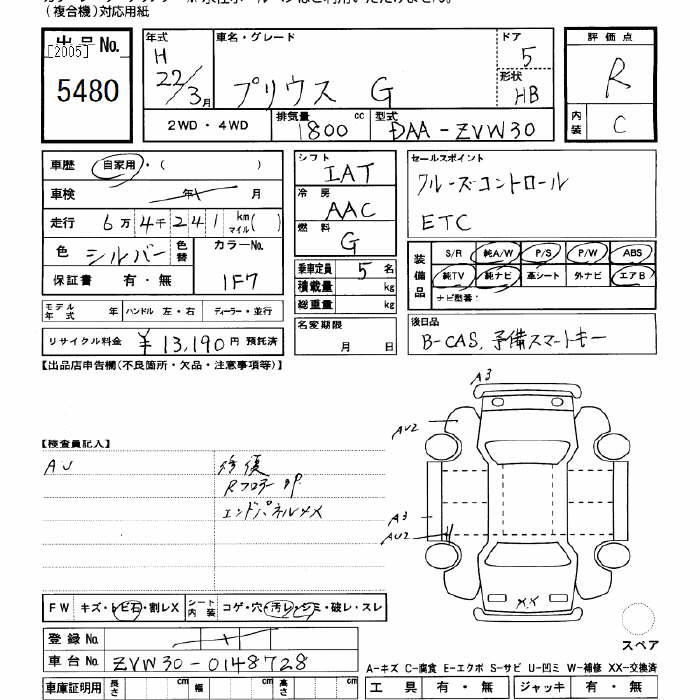 (複合機)対応用紙
出品No.
[2005]
5480
年式 車名・グレード ドア 評価点
H 22/3月 プリウス G 5 R
形状 HB
2WD・4WD 排気量 1800 cc 型式 DAA-ZVW30 内装 C
車歴 自家用・( )
車検 年 月
走行 6万4千241 km マイル( )
色 シルバー 色替 カラーNo.
保証書 有・無 1F7
モデル年式 年 ハンドル 左・右 ディーラー・並行
リサイクル料金 ¥13,190円 預託済
シフト IAT
冷房 AAC
燃料 G
乗車定員 5名
積載量 kg
総重量 kg
名変期限
月 日
セールスポイント
クルーズコントロール
ETC
装備品 S/R 純A/W P/S P/W ABS
純TV 純ナビ 革シート 外ナビ エアB
ナビ型番:
後日品
B-CAS, 予備スマートキー
【出品店申告欄(不良箇所・欠品・注意事項等)】
【検査員記入】
AU 修復
Rフロアー
エンドパネルXX
A3
AU2
A3
AU2
XX
スペア
FW キズ・トビ石・割レX シート内装 コゲ・穴・汚レ・シミ・破レ・スレ
登録No.
車台No. ZVW30-0148728
A-キズ C-腐食 E-エクボ S-サビ U-凹ミ W-補修 XX-交換済
車庫証明用 長さ cm 幅 cm 高さ cm 工具 有・無 ジャッキ 有・無